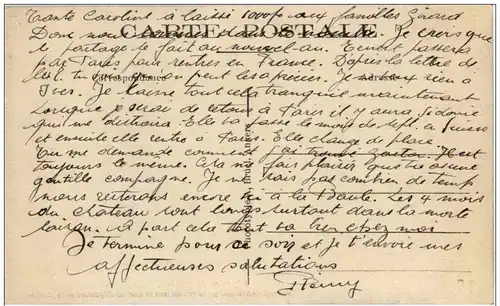 Tante Caroline a laissé 1000 f aux familles Girard
Donc nous dans le Je crois que
CARTE POSTALE
le partage se fait au nouvel-an. Ernest passera
par Paris pour rentrer en France. D'après la lettre de
on peut les préciser. rien a
Correspondance
Adresse
Yves. Je laisse tout cela tranquille maintenant
Lorsque je serai de retour à Paris il y aura
qui me distraira. Elle va passer le mois de sept. en Suisse
et ensuite elle rentre à Paris. Elle change de place.
Tu me demandes comment j'ai trouvé Gaston. Il est
toujours le même. Cela me fais plaisir d'être a une
gentille compagne. Je ne sais pas combien de temps
nous resterons encore ici à la Baule. Les 4 mois
du château sont longs surtout dans la morte
saison. A part cela tout va bien chez moi
Je termine pour ce soir et je t'envoie mes
affectueuses salutations
Rémy